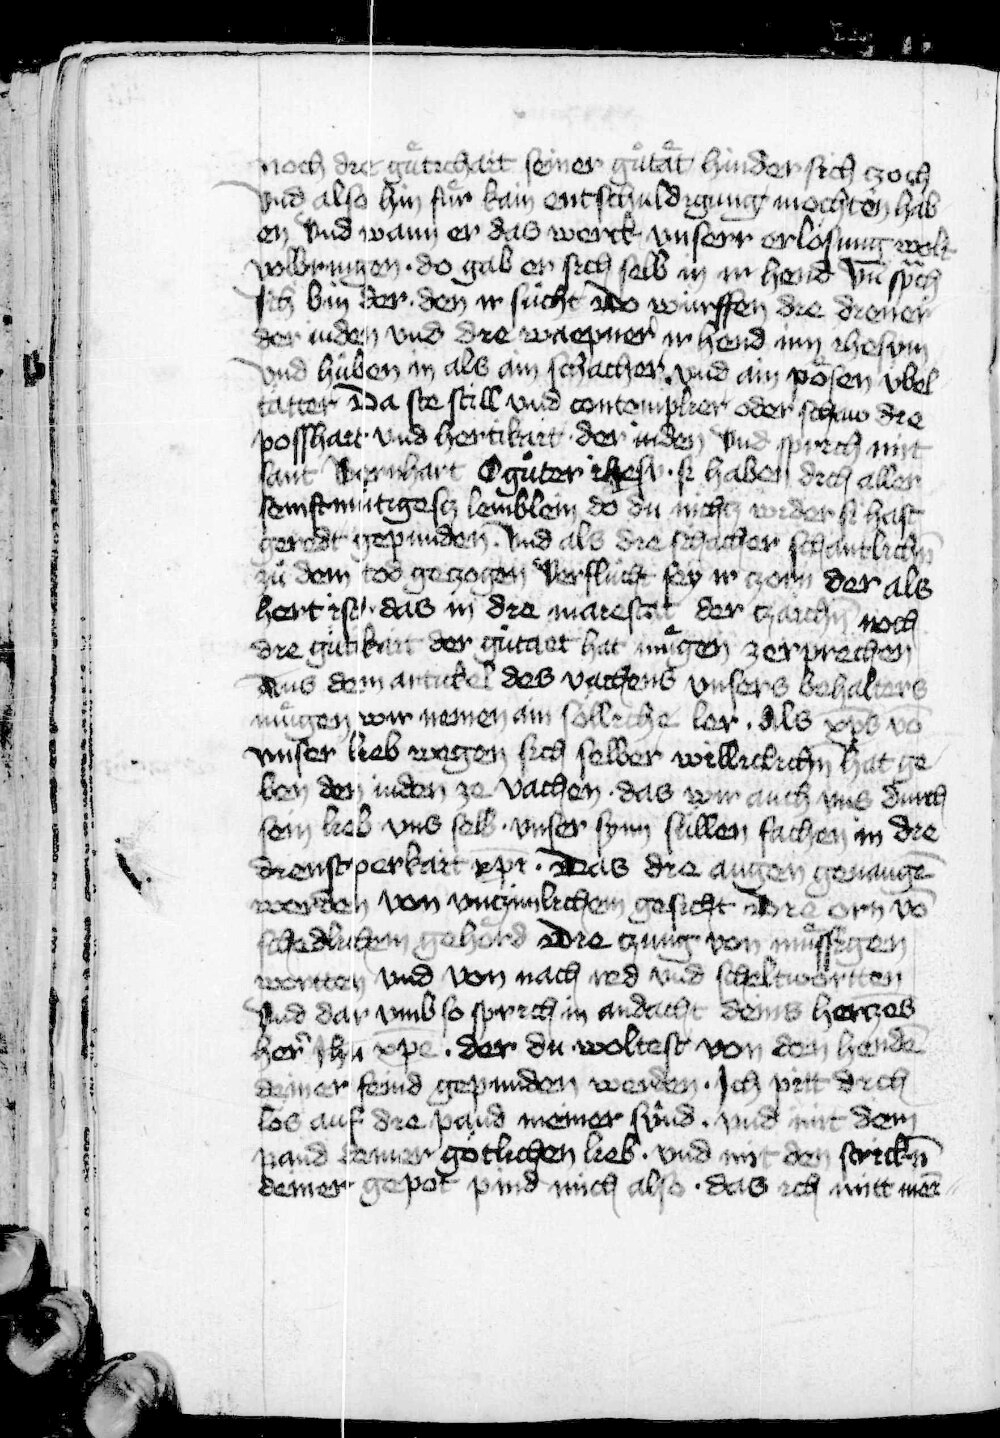 noch die guͤtichait seiner guͤtaͤt hinder sich zoch
Vnd also hin fuͤr kain entschuldigung mochten hab
en Vnd wann er das werck vnserr erlosung wolt
volbringen · do gab er sich selb in ir hend Vn̄ sp̄ch
Ich bin der · den ir sücht Do wurffen die diener
der iuden vnd die waepner ir hend inn ihesum
Vnd huͤben in als ain schacher · vnd ain poͤsen vbel
tätter Da ste still vnd contemplier oder schaw die
posshait vnd hertikait · der iuden Vnd sprich mit
sant Bernhart O guͦter ihesu · si haben dich aller
senftmütigescz lemblein do du nichcz wider si hast
geredt gepunden · Vnd als die schacher schantlichn̄
zuͦ dem tod geczogen Verflücht sey ir zorn der als
hert ist · das in die maiestat der zaichn̄ noch
die gütikait der guͤtaet hat muͤgen zerprechen
Aus dem artickel des vachens vnsers behalters
muͤgen wir nemen ain solliche ler · Als xp̄s vō
vnser lieb wegen sich selber willicklichn̄ hat ge
ben den iuden ze vachen · das wir auch vns durch
sein lieb vns selb · vnser synn sullen fachen in die
dienstperkait xp̄i · Das die augen geuangē
werden von vnzimlichem gesicht Die orn vō
schedlichem gehoͤrd Die zung von muͤssigen
wortten vnd von nach red vnd scheltwortten
Vnd dar vmb so sprich in andacht deins herczes
her̄ Ihū xp̄e · der du woltest von den hendē
deiner feind gepunden werden · Ich pitt dich
los auf die pand meiner sünd · vnd mit dem
pand deiner götlichen lieb · vnd mit den strickn̄
deiner gepot pind mich also · das ich mitt mer̄